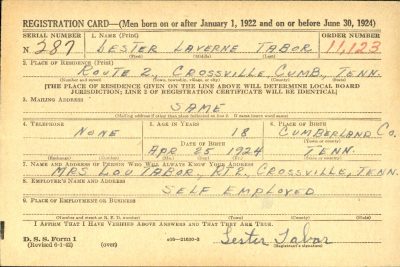 REGISTRATION CARD—(Men born on or after January 1, 1922 and on or before June 30, 1924)
SERIAL NUMBER 1. NAME (Print) ORDER NUMBER
N 287 LESTER LAVERNE TABOR 11,123
(First) (Middle) (Last)
2. PLACE OF RESIDENCE (Print)
ROUTE 2, CROSSVILLE, CUMB, TENN.
(Number and street) (Town, township, village, or city) (County) (State)
[THE PLACE OF RESIDENCE GIVEN ON THE LINE ABOVE WILL DETERMINE LOCAL BOARD
JURISDICTION; LINE 2 OF REGISTRATION CERTIFICATE WILL BE IDENTICAL]
3. MAILING ADDRESS
SAME
(Mailing address if other than place indicated on line 2. If same insert word same)
4. TELEPHONE 5. AGE IN YEARS 6. PLACE OF BIRTH
NONE 18 CUMBERLAND CO.
DATE OF BIRTH (Town or county)
APR 25 1924 TENN.
(Exchange) (Number) (Mo.) (Day) (Yr.) (State or country)
7. NAME AND ADDRESS OF PERSON WHO WILL ALWAYS KNOW YOUR ADDRESS
MRS LOU TABOR, RT 2, CROSSVILLE, TENN.
8. EMPLOYER'S NAME AND ADDRESS
SELF EMPLOYED
9. PLACE OF EMPLOYMENT OR BUSINESS
(Number and street or R. F. D. number) (Town) (County) (State)
I AFFIRM THAT I HAVE VERIFIED ABOVE ANSWERS AND THAT THEY ARE TRUE.
D. S. S. Form 1
(Revised 6-1-42) (over) 16—21630-2 Lester Tabor
(Registrant's signature)